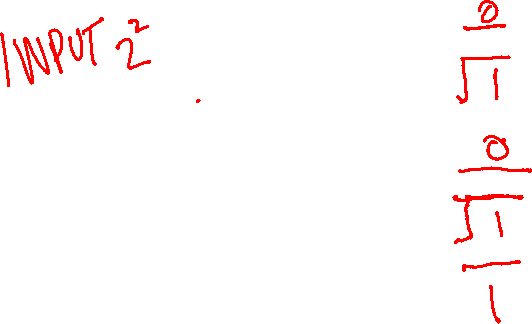 INPUT 2²
0
√1
0
√1
1